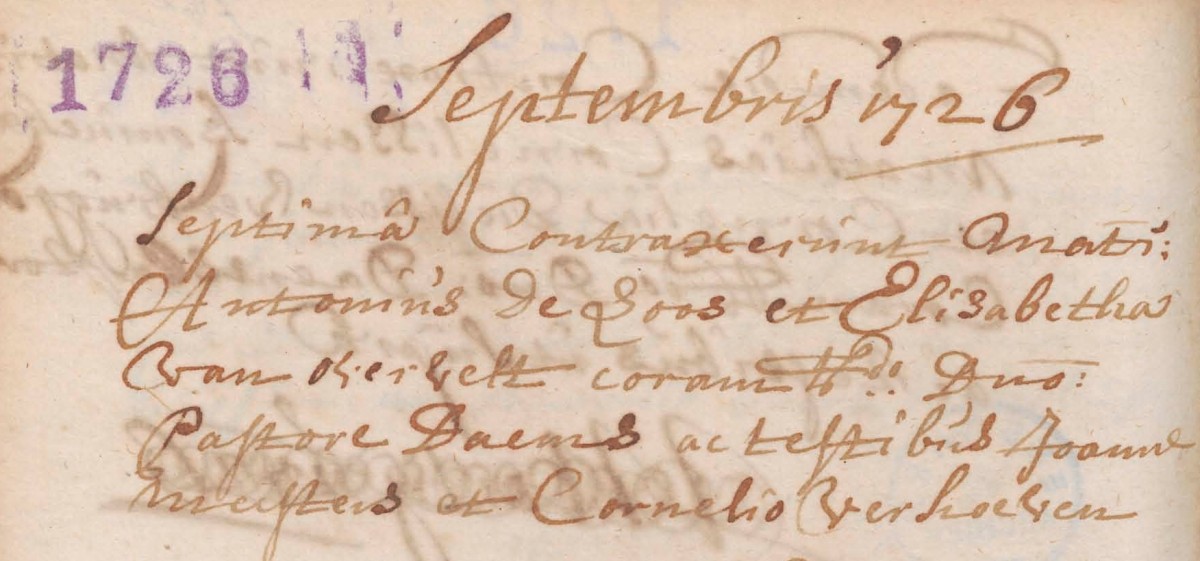 1726
Septembris 1726
Septimâ Contraxerunt Mati:
Antonius De Loos et Elisabetha
van overvelt coram Rdo Dno:
Pastore Daems ac testibus Joanne
meesters et Cornelio verhoeven